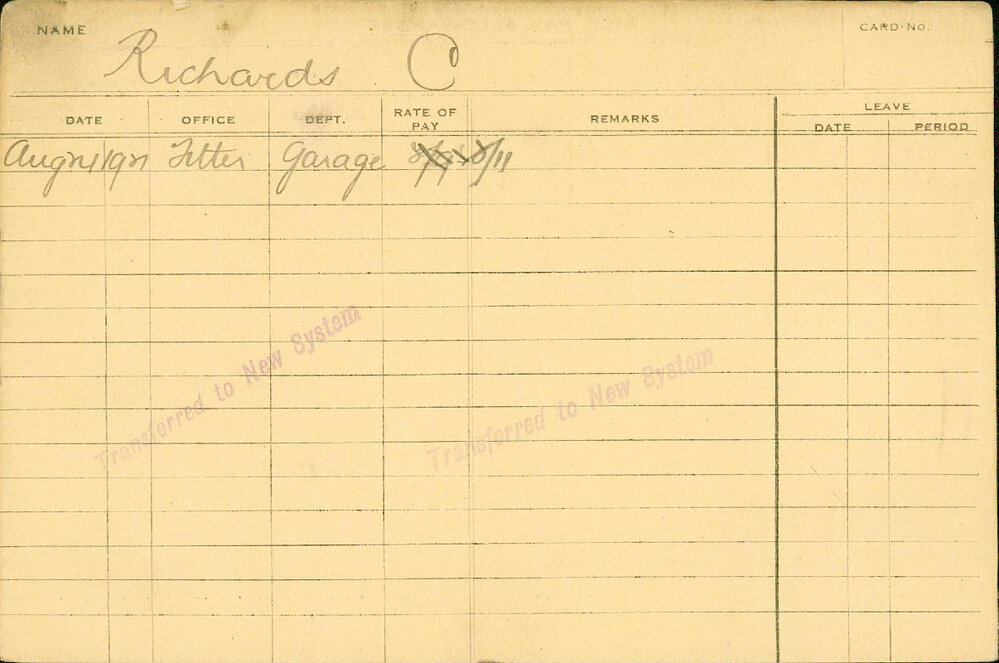 NAME CARD No.
Richards C
LEAVE
DATE OFFICE DEPT. RATE OF PAY REMARKS DATE PERIOD
Fitter Garage /11
Transferred to New System
Transferred to New System